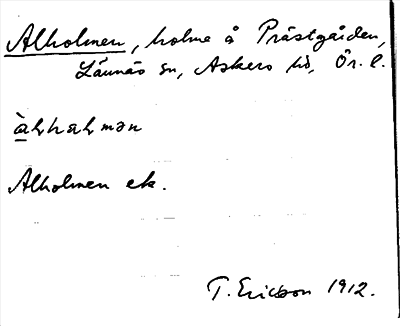 Alholmen, holme å Prästgården,
Lännäs sn, Askers hd, Ör. l.
Alholmen ek.
T. Ericsson 1912.